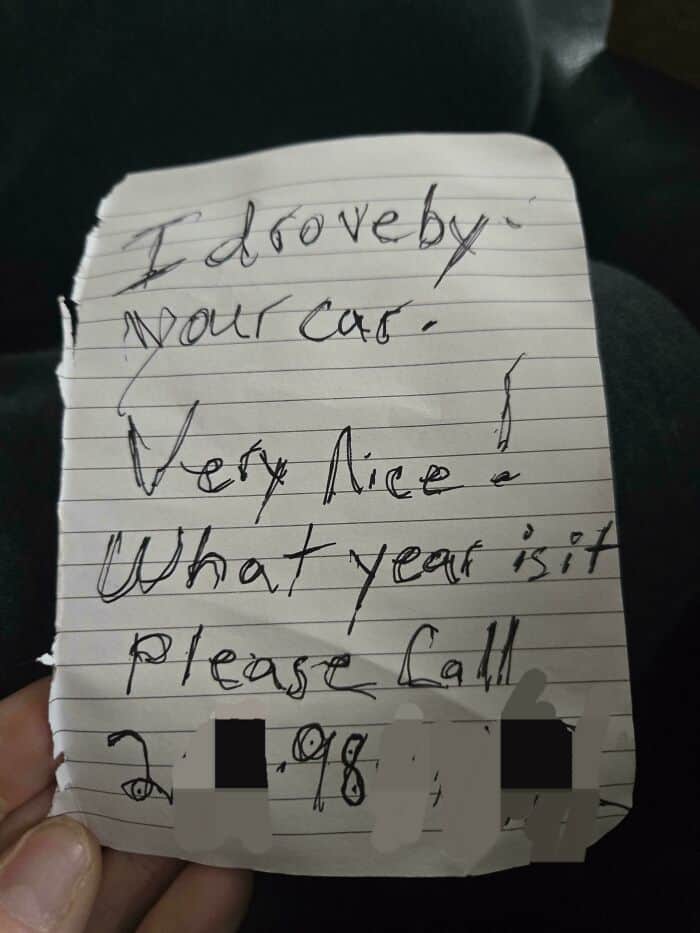 I drove by
your car.
Very Nice!
What year is it
Please Call
2 .98